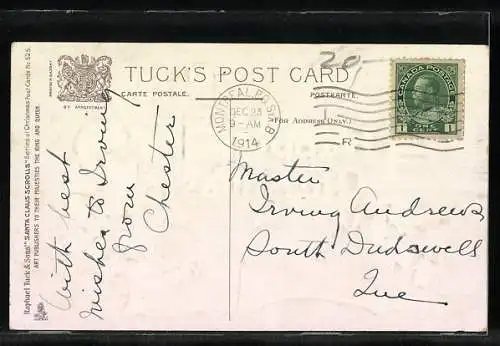 TUCK'S POST CARD
CARTE POSTALE.
POSTKARTE.
(FOR ADDRESS ONLY.)
BY APPOINTMENT
20-
CANADA POSTAGE
1 1
MONTREAL, P. STN B
DEC 23
9-AM
1914
R
Raphael Tuck & Sons' "SANTA CLAUS SCROLLS" Series of Christmas Post Cards No 525.
ART PUBLISHERS TO THEIR MAJESTIES THE KING AND QUEEN.
With best
wishes to Irving
from
Chester
Master
Irving Andrews
South Dudswell
Que